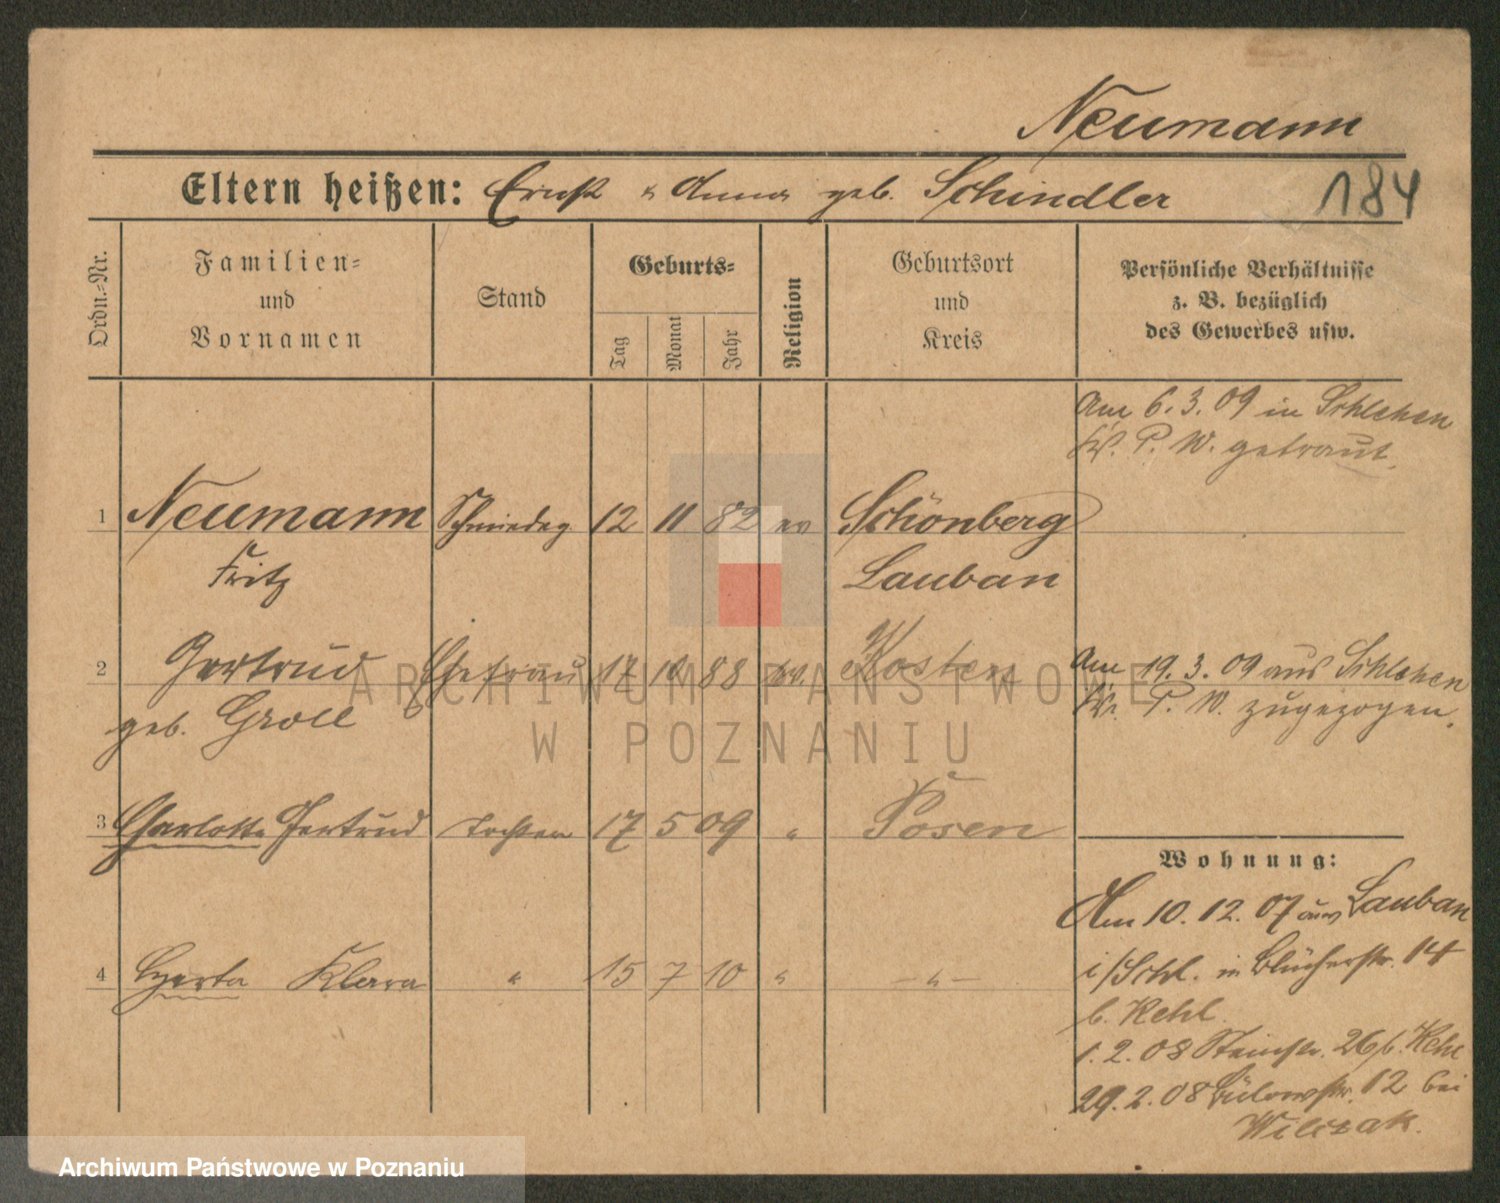 Neumann
Eltern heißen: Ernst u Anna geb. Schindler
184
Ordn.-Nr.
Familien-
und
Vornamen
Stand
Geburts-
Tag
Monat
Jahr
Religion
Geburtsort
und
Kreis
Persönliche Verhältnisse
z. B. bezüglich
des Gewerbes usw.
Am 6. 3. 09 in Schlehen
Kr. P. W. getraut.
1 Neumann Schmiedeg. 12 11 82 ev Schönberg
Fritz Lauban
2 Gertrud Ehefrau 17 10 88 ev. Kosten
geb. Groll
Am 19. 3. 09 aus Schlehen
Kr. P. W. zugezogen.
3 Charlotte Gertrud Tochter 17 5 09 " Posen
4 Herta Klara " 15 7 10 " - " -
Wohnung:
Am 10. 12. 07 aus Lauban
i/Schl. in Blücherstr. 14
b. Kehl
1. 2. 08 Steinstr. 26 b. Kehl
29. 2. 08 Bülowstr. 12 bei
Wilczak.
ARCHIWUM PAŃSTWOWE
W POZNANIU
Archiwum Państwowe w Poznaniu